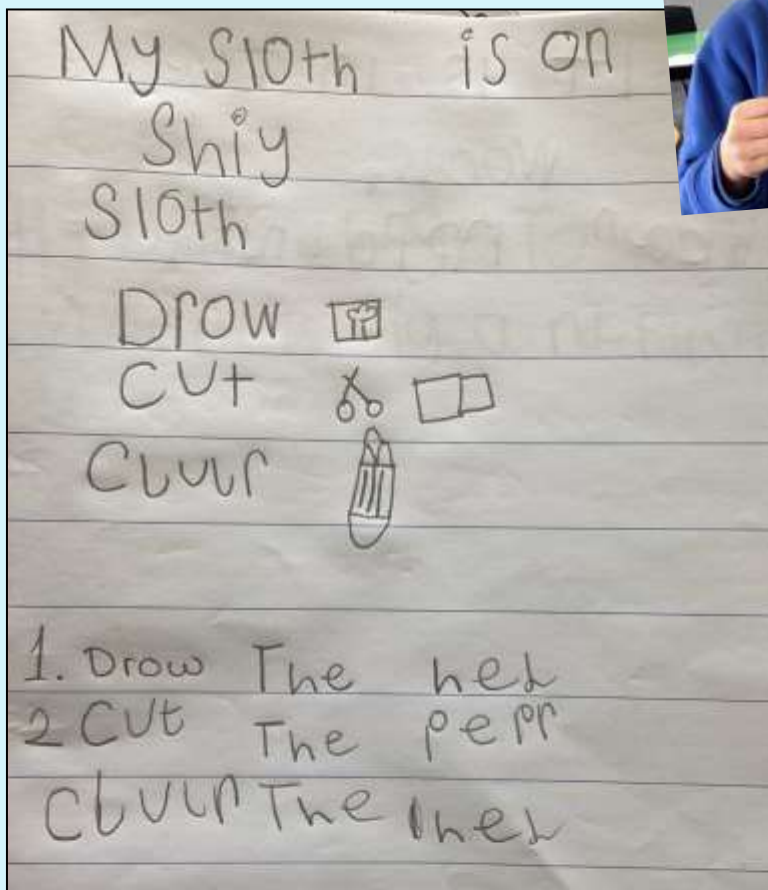 My Sloth is on
Shiy
Sloth
Drow
Cut
Cluur
1. Drow The hed
2 Cut The pepr
The